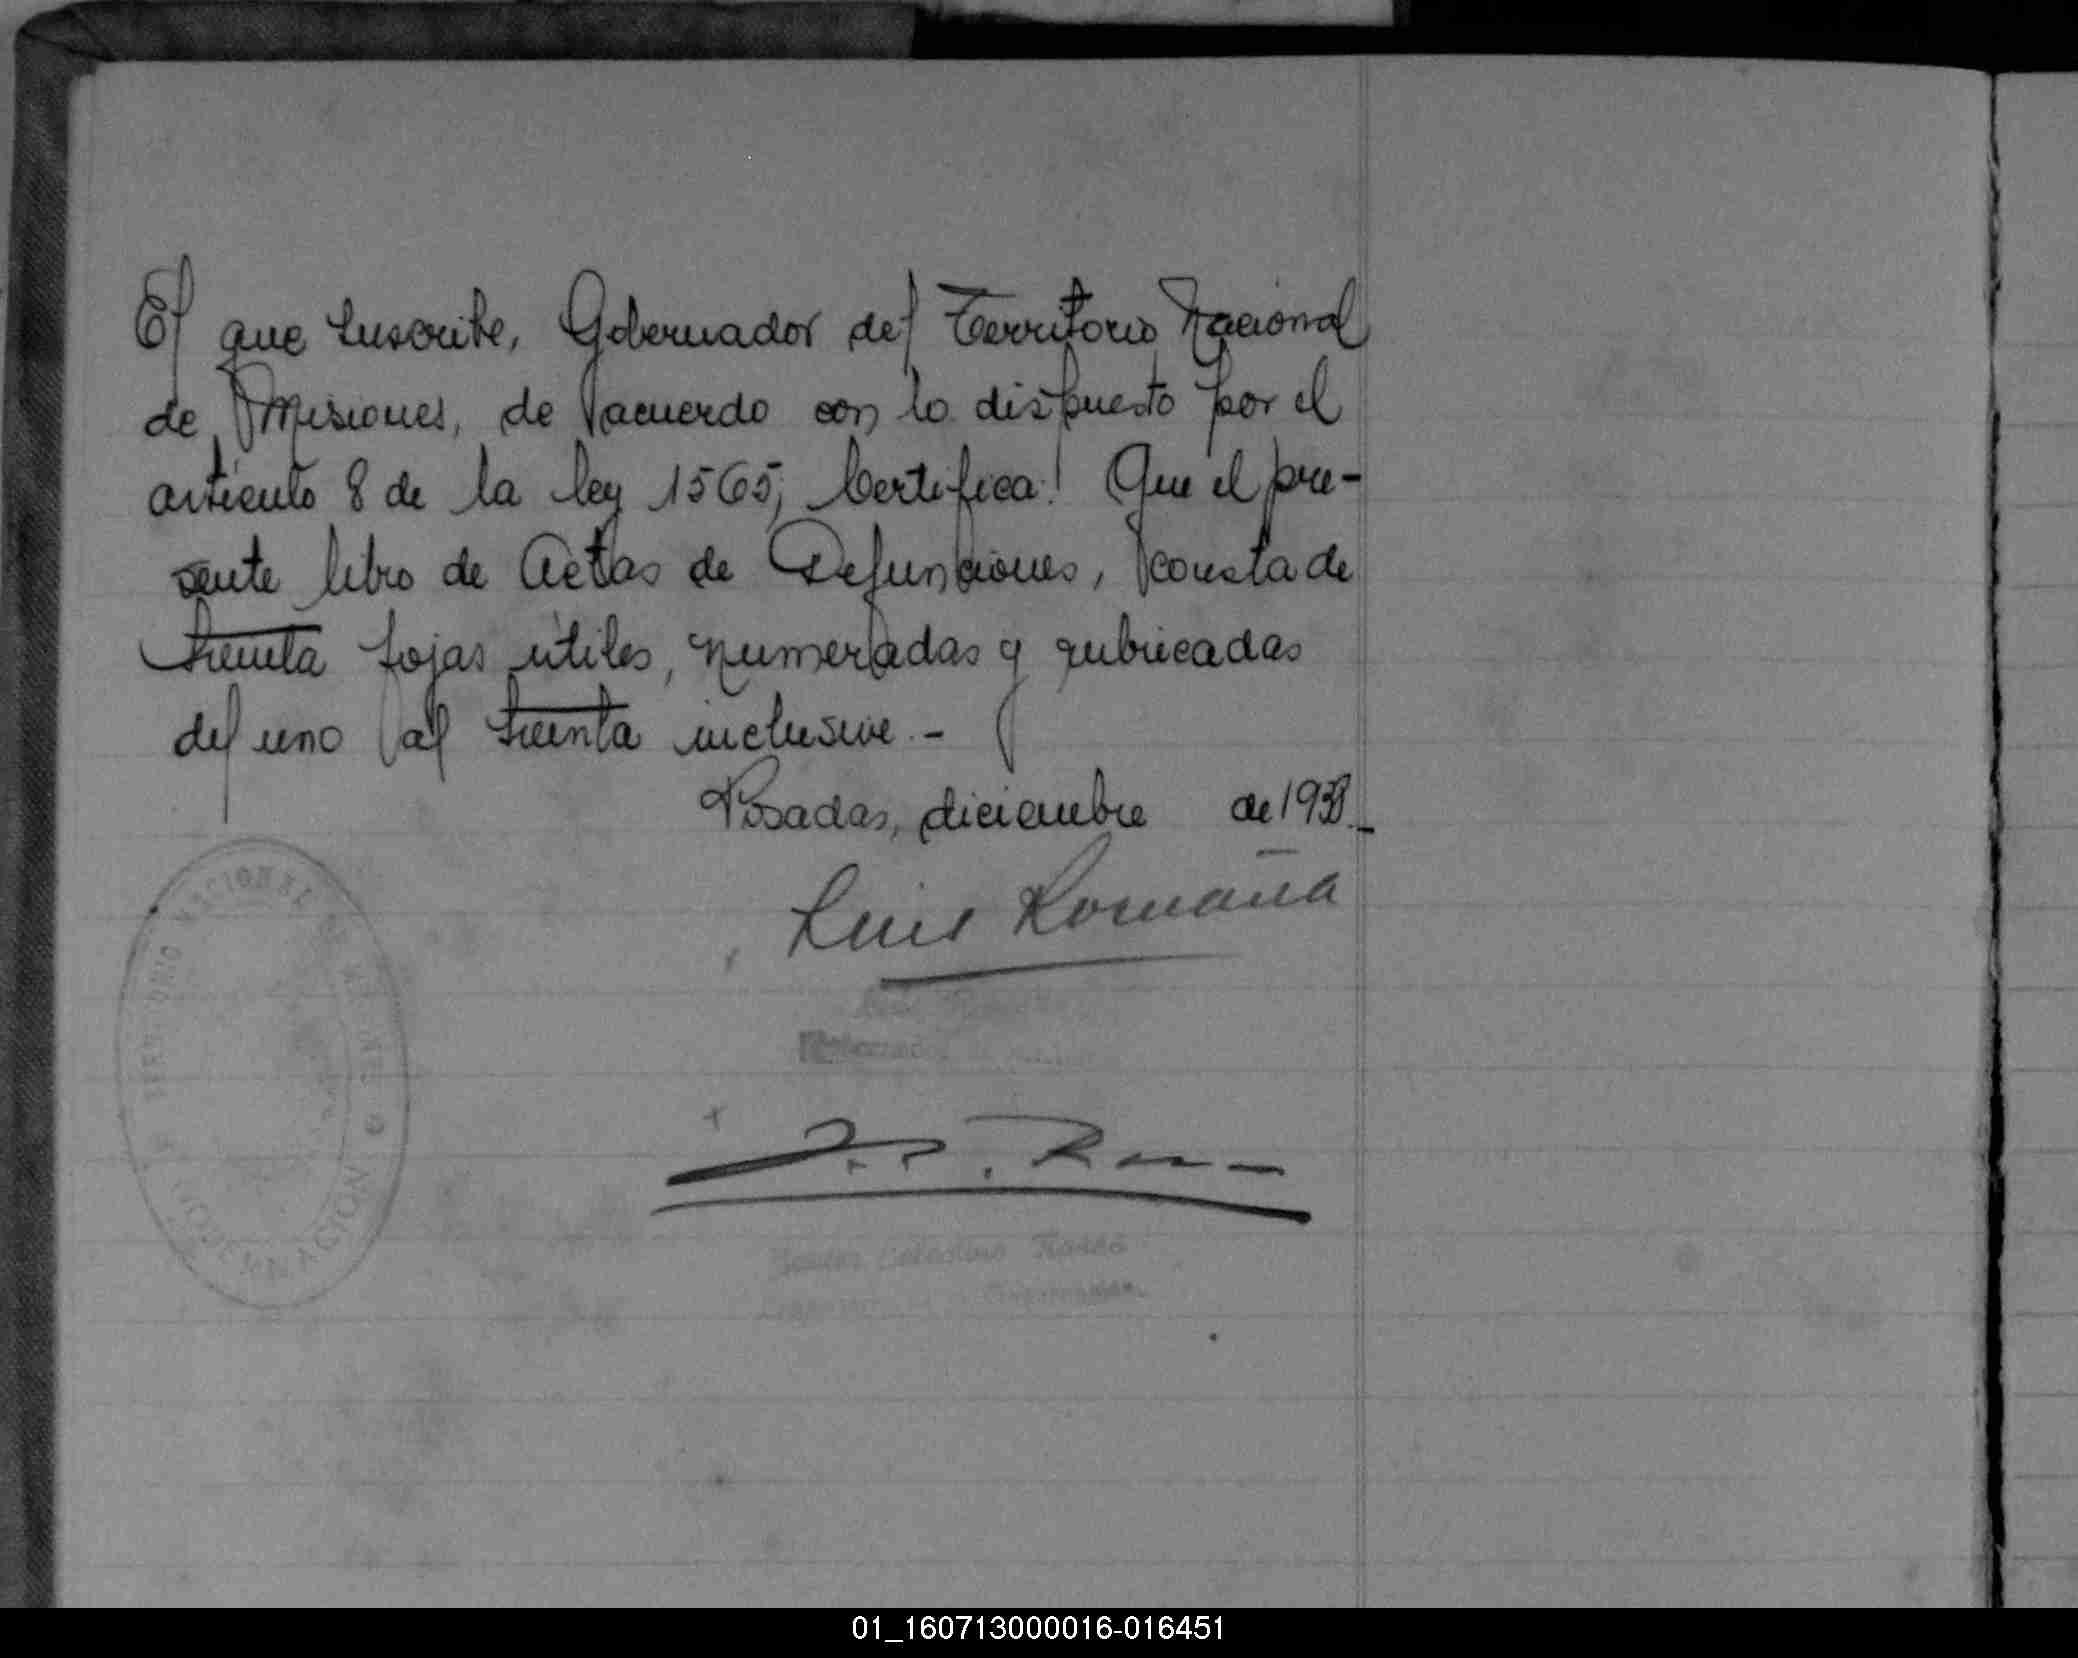 El que suscribe, Gobernador del Territorio Nacional
de Misiones, de acuerdo con lo dispuesto por el
artículo 8 de la ley 1565, Certifica: Que el pre-
sente libro de Actas de Defunciones, consta de
treinta fojas útiles, numeradas y rubricadas
del uno al treinta inclusive.-
Posadas, diciembre de
Luis Romaña
TERRITORIO NACIONAL DE MISIONES
GOBERNACIÓN
01_160713000016-016451